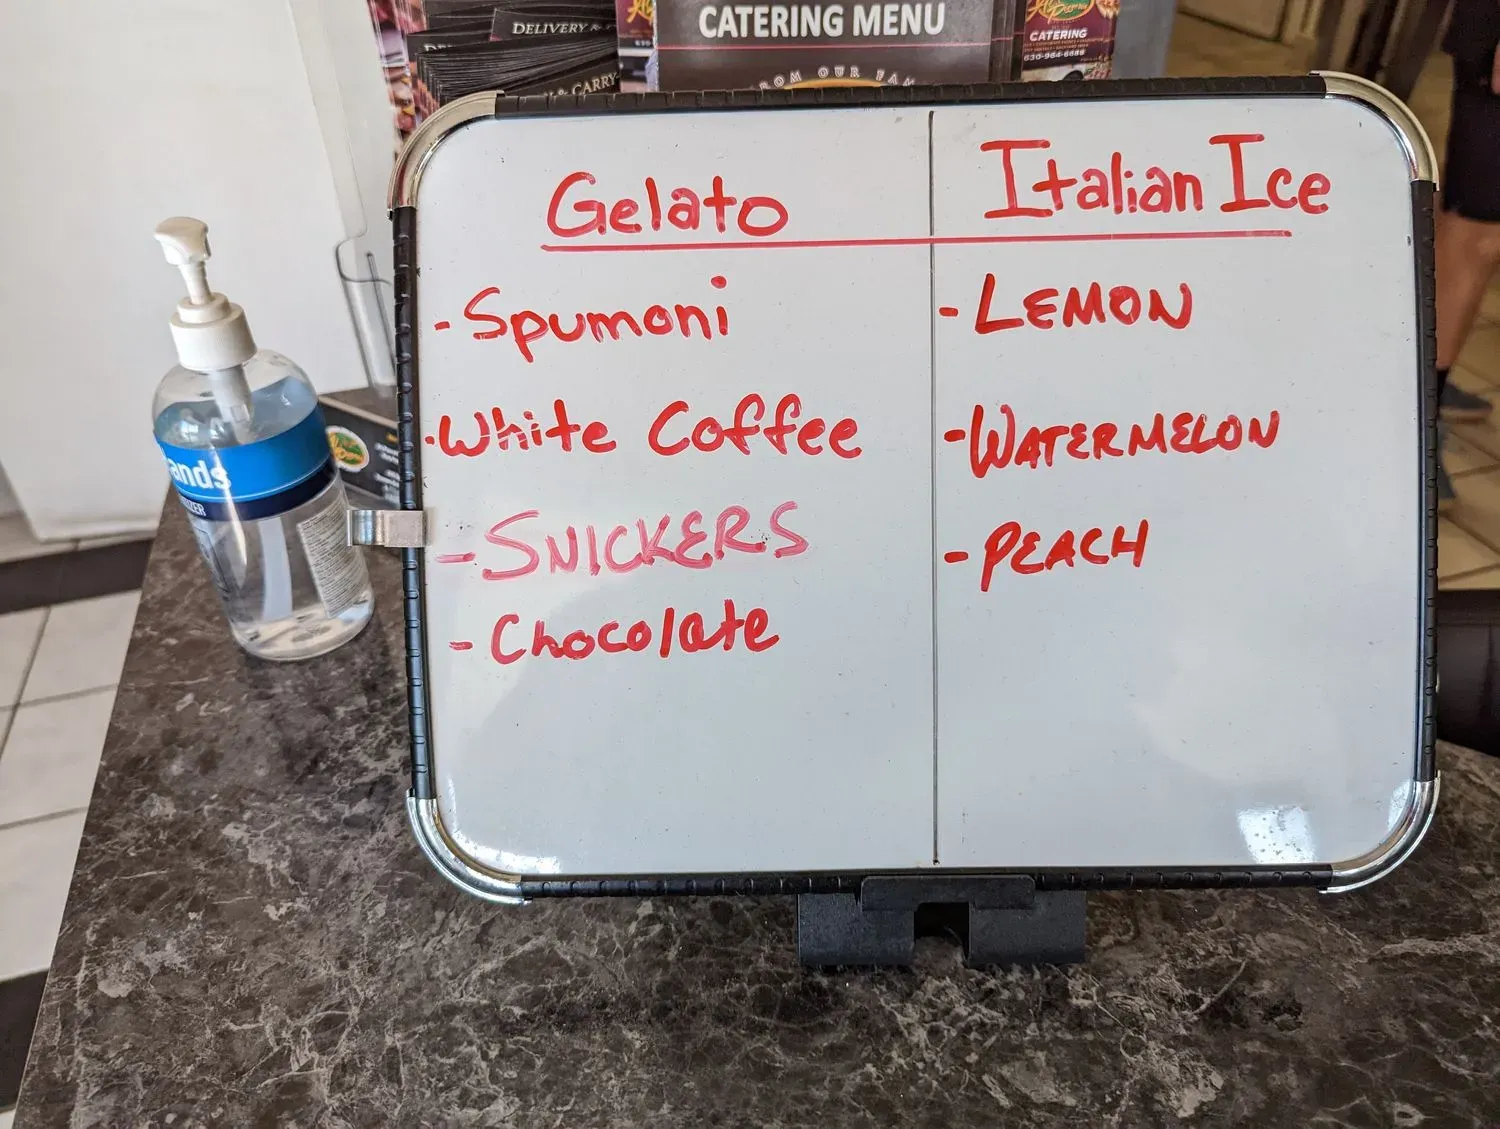 DELIVERY &
& CARRY-
CATERING MENU
FROM OUR FAM
CATERING
630-964-6688
Gelato
Italian Ice
- Spumoni
- White Coffee
- SNICKERS
- Chocolate
- LEMON
- WATERMELON
- PEACH
ands